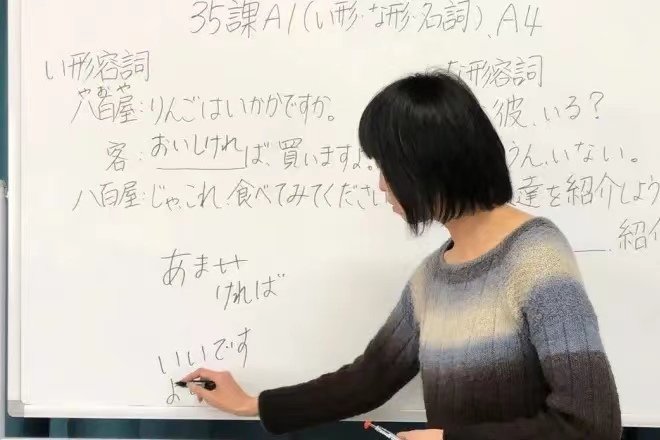 35課A1(い形・な形・名詞)、A4
い形容詞
やおや
八百屋:りんごはいかがですか。
客:おいしければ、買いますよ。
八百屋:じゃ、これ、食べてみてください
あまけ
ければ
いいです
よ
形容詞
彼、いる?
うん、いない。
達を紹介しよう
紹介